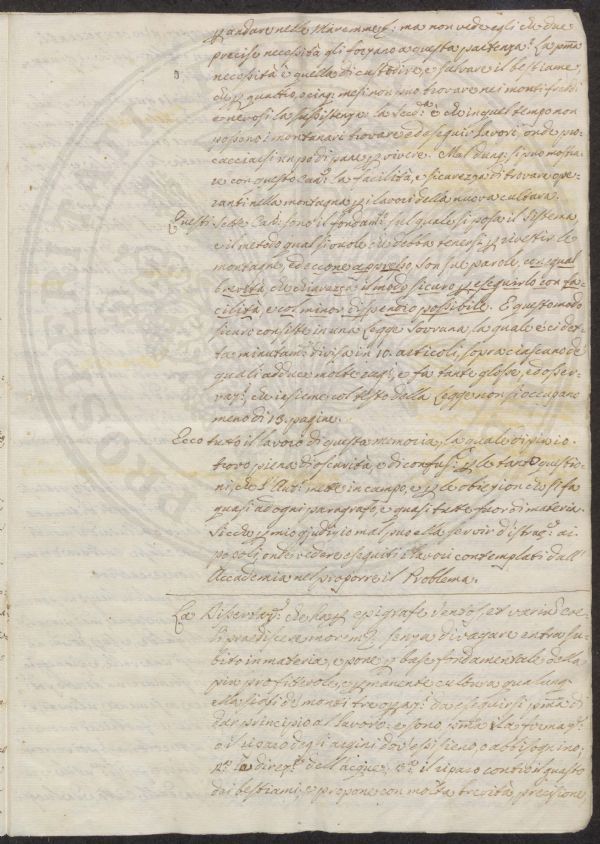 andare nelle Maremme: ma non vede egli che due
precise necessità gli forzano a questa partenza? La prima
necessità è quella di custodire, e salvare il bestiame,
che quattro, o cinq. mesi non può trovare nei monti freddi
e nevosi la sussistenza. la Sec.da è che in quel tempo non
possono i montanari trovare ed eseguir lavori onde pro
cacciarsi un po di pane vivere. Ma si può mostra
re con questo la facilità, e sicurezza di trovare ope
ranti nella montagna i lavori della nuova cultura.
Questi Sette sono il fondam. sul quale si posa il Sistema,
e il metodo qual si vuole che debba tenersi rivestir le
montagne, ed eccone appresso, son sue parole, con qual
brevità, che chiarezza il modo sicuro eseguirlo con fa
cilità, e col minor dispendio possibile. E questo modo
sicuro consiste in una Legge Sovrana, la quale è
minutam. divisa in 10. articoli, sopra ciascuno de
quali adduce molte rag., e fa tante glosse, ed osser
vaz., che insieme col testo della Legge non si occupano
meno di 13. pagine.
Ecco tutto il lavoro di questa memoria, la quale di più io
trovo piena d'oscurità, e di confus. le tante questio
ni, che l'Aut. mette in campo, e le obiezioni che si fa
quasi ad ogni paragrafo, e quasi tutte fuori di materia.
Sicché mio giudizio mal può ella servir d'istruz. ai
popoli, onde vedere eseguiti i lavori contemplati dall'
Accademia nel proporre il Problema.
La Dissertaz. che ha epigrafe Ventos et varium coe
li praediscere morem senza divagare entra su
bito in materia, e pone base fondamentale della
più profittevole, e permanente cultura qualunq.
ella siasi de' monti tre da eseguirsi prima di
dar principio al lavoro: e sono prima la formaz.
o il riparo degli argini dove essi sieno, o abbisognino;
2.° la direz. dell'acque; 3.° il riparo contro il guasto
dei bestiami, e propone con molta brevità, precisione
PROSPERITATI